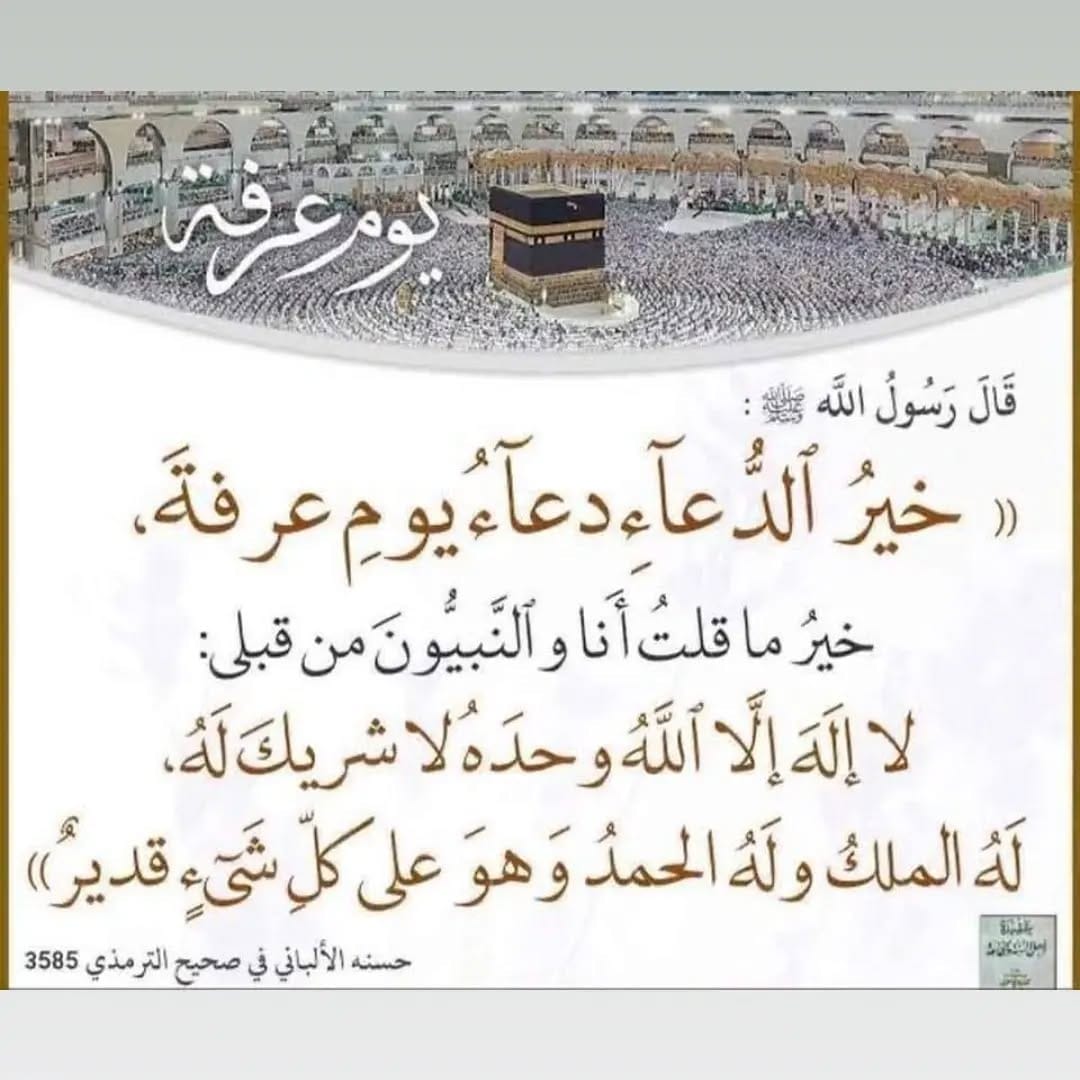 يوم عرفة
قَالَ رَسُولُ اللَّه ﷺ :
(( خيرُ ٱلدُّعآءِ دعآءُ يومِ عرفةَ،
خيرُ ما قلتُ أَنا و ٱلنَّبيُّونَ من قبلي:
لا إلَهَ إلَّا ٱللَّهُ وحدَهُ لا شريكَ لَهُ،
لَهُ الملكُ ولَهُ الحمدُ وَهوَ على كلِّ شَىءٍ قديرٌ))
حسنه الألباني في صحيح الترمذي 3585